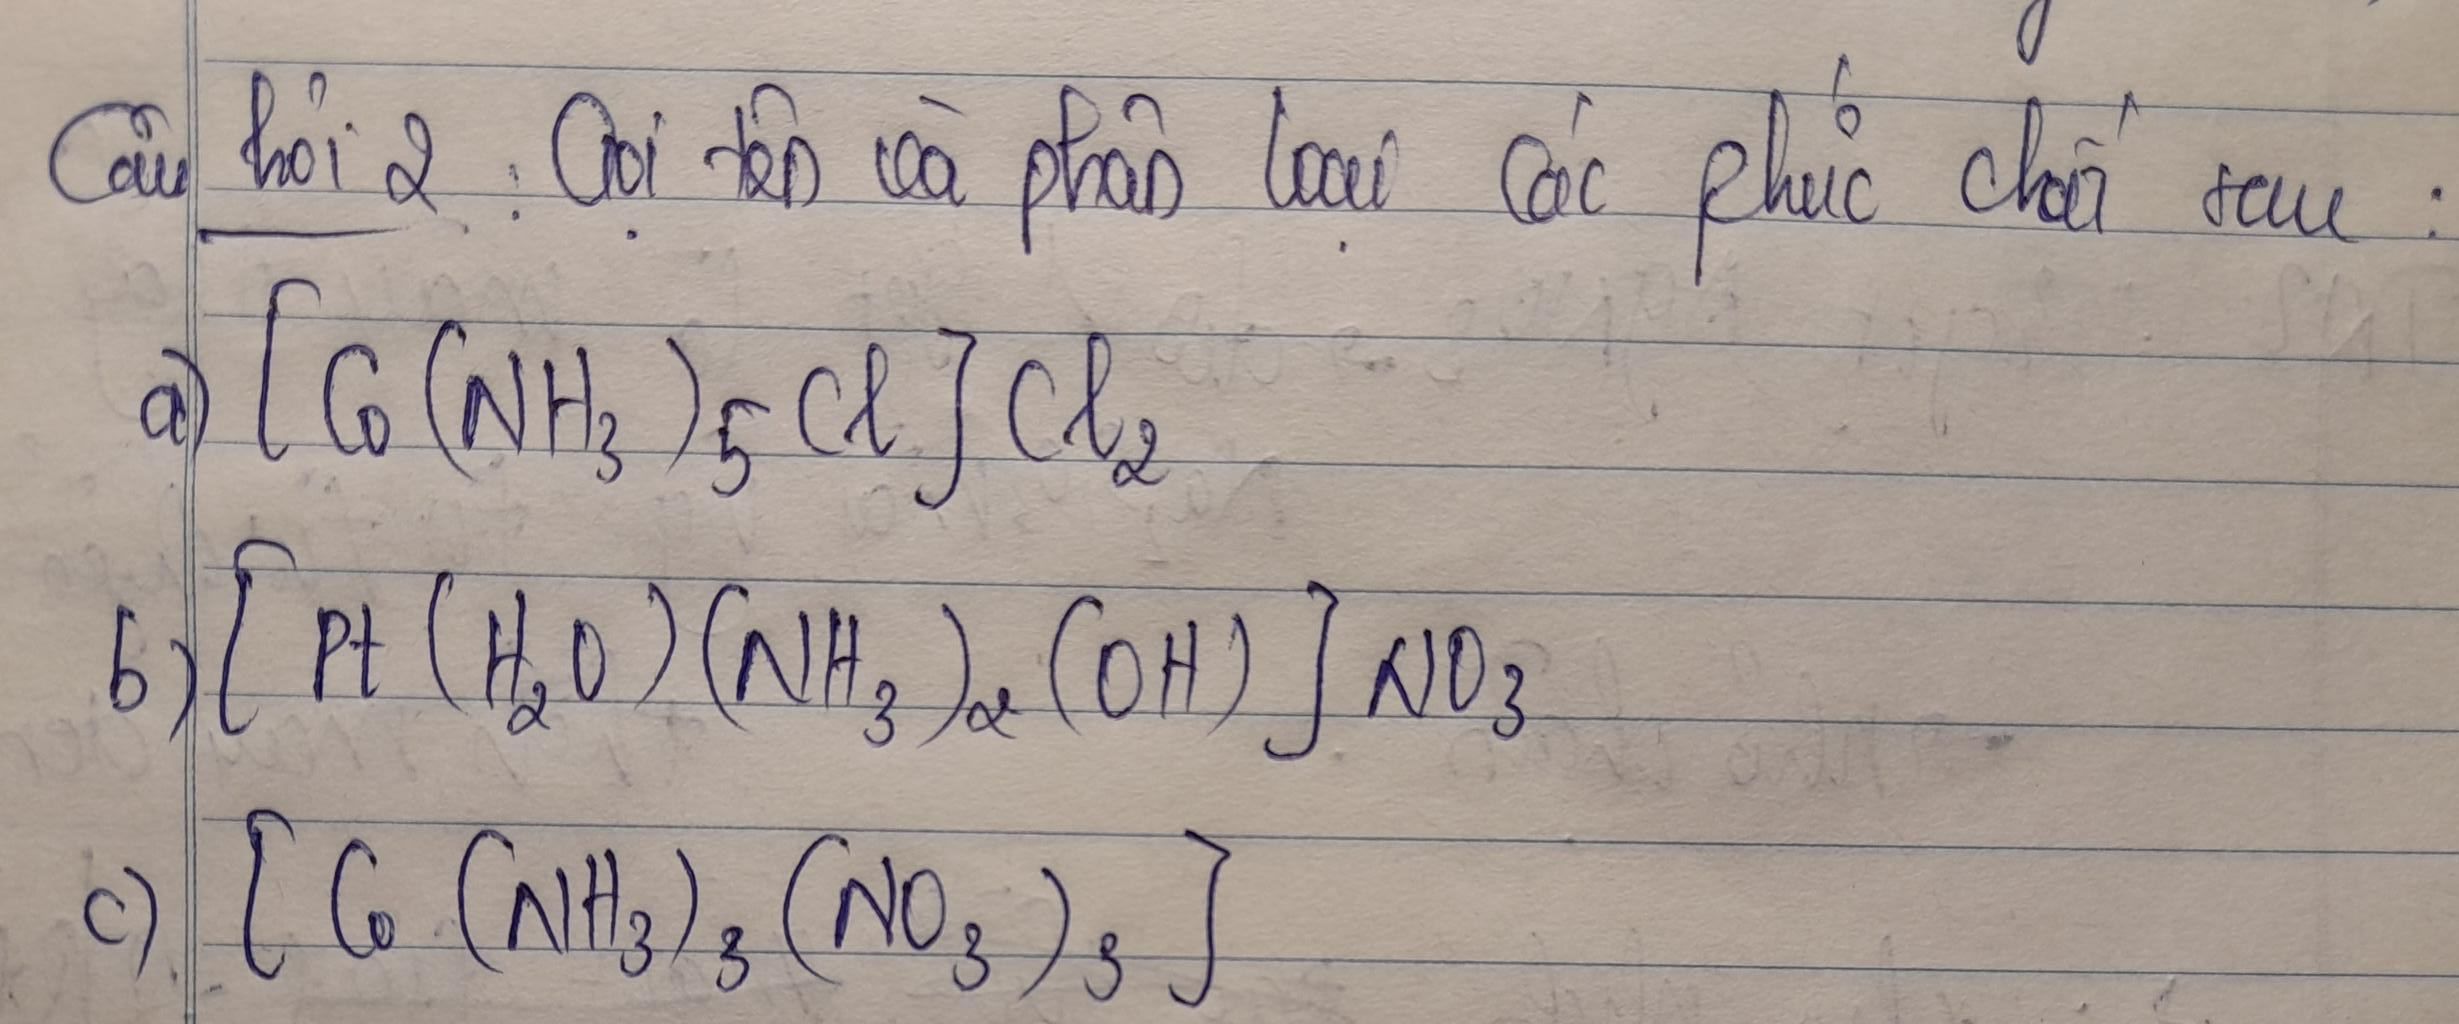 Câu hỏi 2 : Gọi tên và phân loại các phức chất sau :
a) [Co(NH₃)₅Cl]Cl₂
b) [Pt(H₂O)(NH₃)₂(OH)]NO₃
c) [Co(NH₃)₃(NO₃)₃]